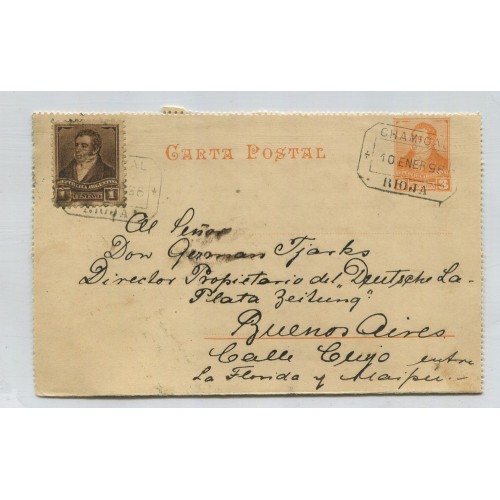 REPUBLICA ARGENTINA
1 CENTAVO 1
RIOJA
CARTA POSTAL
CHAMICAL
10 ENER 96
RIOJA
3
Al Señor
Don German Tjarks
Director Propietario del "Deutsche La-
Plata Zeitung"
Buenos Aires
Calle Cuyo entre
La Florida y Maipu.—